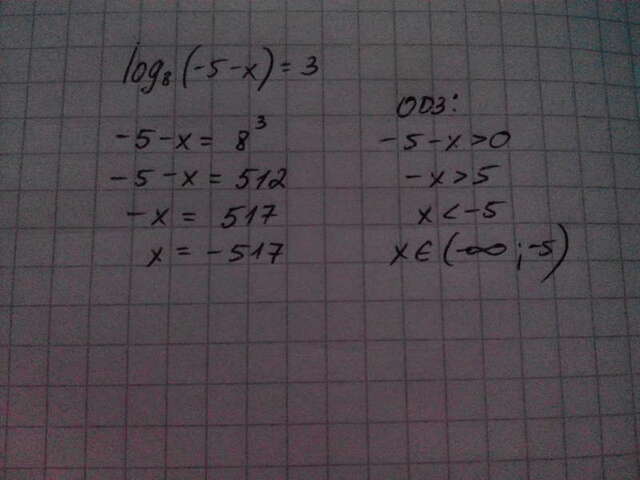 log₈(-5-x)=3
-5-x = 8³
-5-x = 512
-x = 517
x = -517
ОДЗ:
-5-x>0
-x>5
x<-5
x∈(-∞;-5)